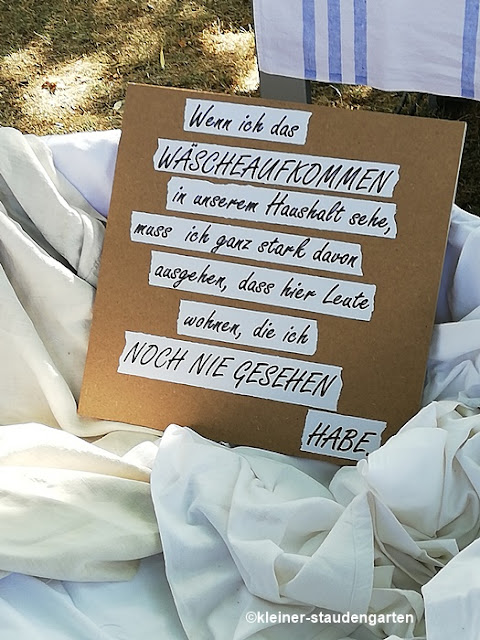 Wenn ich das
WÄSCHEAUFKOMMEN
in unserem Haushalt sehe,
muss ich ganz stark davon
ausgehen, dass hier Leute
wohnen, die ich
NOCH NIE GESEHEN
HABE.
©kleiner-staudengarten